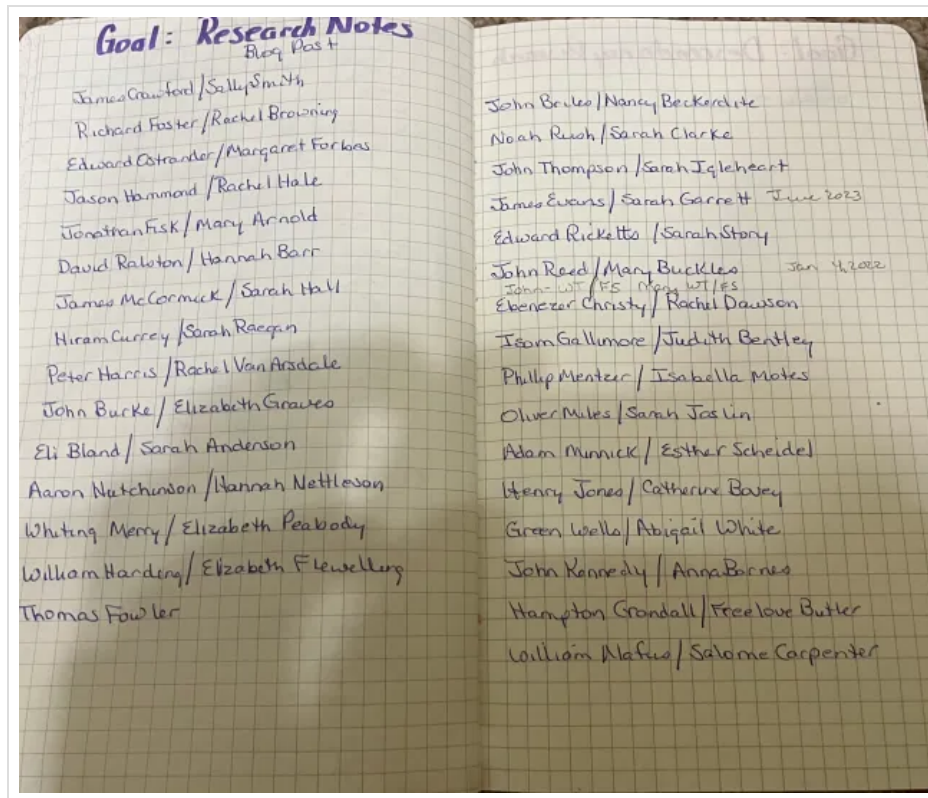 Goal: Research Notes
Blog Post
James Crawford/Sally Smith
Richard Foster/Rachel Browning
Edward Ostrander/Margaret Forbes
Jason Hammond/Rachel Hale
Jonathan Fisk/Mary Arnold
David Ralston/Hannah Barr
James McCormick/Sarah Hall
Hiram Currey/Sarah Reegan
Peter Harris/Rachel Van Arsdale
John Burke/Elizabeth Graves
Eli Bland/Sarah Anderson
Aaron Hutchinson/Hannah Nettleson
Whiting Merry/Elizabeth Peabody
William Harding/Elizabeth Flewelling
Thomas Fowler
John Briles/Nancy Beckerdite
Noah Rush/Sarah Clarke
John Thompson/Sarah Igleheart
James Evans/Sarah Garrett June 2023
Edward Ricketts/Sarah Story
John Reed/Mary Buckles Jan 4, 2022
John-WT/FS Mary WT/FS
Ebenezer Christy/Rachel Dawson
Isom Gallimore/Judith Bentley
Phillip Mentzer/Isabella Motes
Oliver Miles/Sarah Joslin
Adam Minnick/Esther Scheidel
Henry Jones/Catherine Bovey
Green Wells/Abigail White
John Kennedy/Anna Barnes
Hampton Crandall/Freelove Butler
William /Salome Carpenter